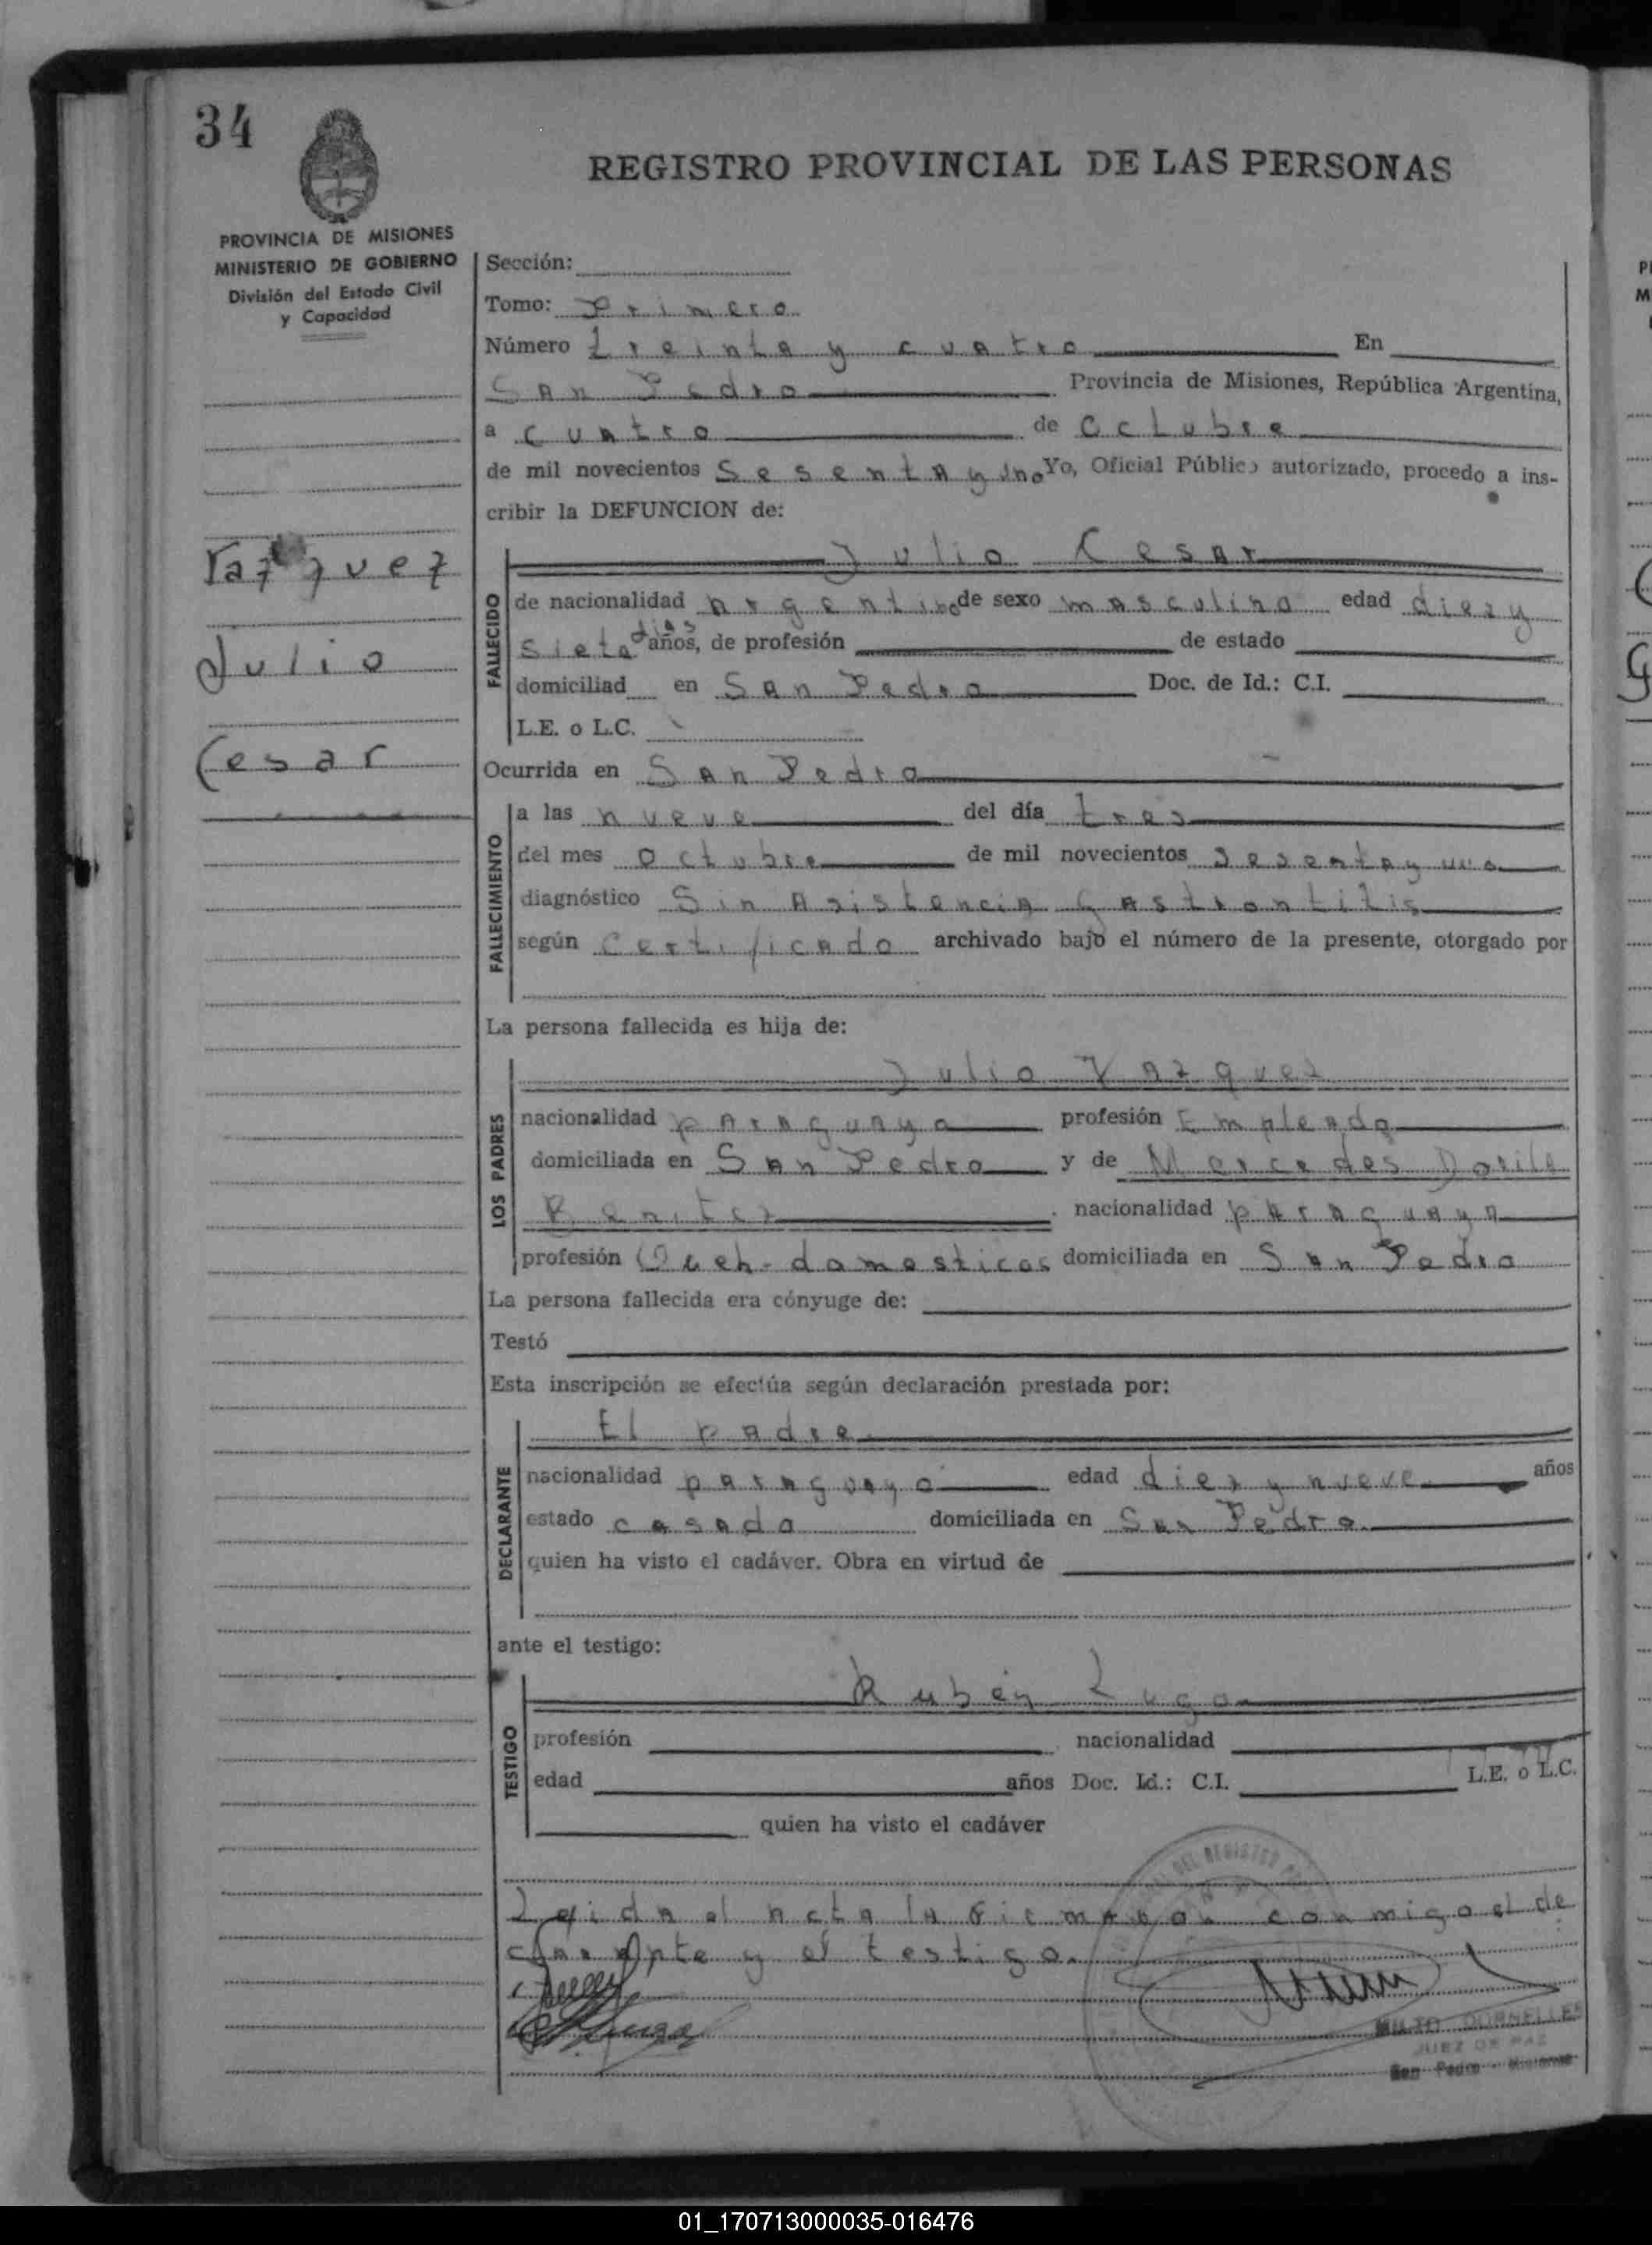 34
REGISTRO PROVINCIAL DE LAS PERSONAS
PROVINCIA DE MISIONES
MINISTERIO DE GOBIERNO
División del Estado Civil
y Capacidad
Vazquez
Julio
Cesar
Sección:
Tomo: Primero
Número Treinta y cuatro En
San Pedro Provincia de Misiones, República Argentina,
a cuatro de Octubre
de mil novecientos Sesenta y uno Yo, Oficial Público autorizado, procedo a ins-
cribir la DEFUNCION de:
FALLECIDO
Julio Cesar
de nacionalidad argentino de sexo masculino edad diez y
dias
siete años, de profesión de estado
domiciliad en San Pedro Doc. de Id.: C.I.
L.E. o L.C.
Ocurrida en San Pedro
FALLECIMIENTO
a las nueve del día tres
del mes octubre de mil novecientos sesenta y uno
diagnóstico Sin Asistencia Gastrontitis
según Certificado archivado bajo el número de la presente, otorgado por
La persona fallecida es hija de:
LOS PADRES
Julio Vazquez
nacionalidad paraguayo profesión Empleado
domiciliada en San Pedro y de Mercedes Dorila
Benitez nacionalidad paraguaya
profesión Queh-domesticos domiciliada en San Pedro
La persona fallecida era cónyuge de:
Testó
Esta inscripción se efectúa según declaración prestada por:
DECLARANTE
El padre
nacionalidad paraguayo edad diez y nueve años
estado casado domiciliada en San Pedro
quien ha visto el cadáver. Obra en virtud de
ante el testigo:
TESTIGO
Rubén Lugo
profesión nacionalidad
edad años Doc. Id.: C.I. L.E. o L.C.
quien ha visto el cadáver
DEL REGISTRO
Leida el acta la firmaron conmigo el de
clarante y el testigo.
DORNELLES
JUEZ DE PAZ
San Pedro - Misiones
01_170713000035-016476